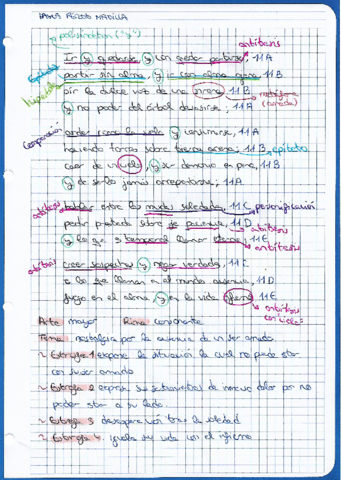 → polisíndeton ("y")
antítesis
Ir y quedarse, y con quedar partirse, 11A
partir sin alma, y ir con alma ajena, 11B
oír la dulce voz de una sirena 11B
y no poder del árbol desasirse, 11A
Comparación
arder como la vela y consumirse, 11A
haciendo torres sobre tierna arena; 11B → epíteto
caer de un cielo, y ser demonio en pena, 11B
y de serlo jamás arrepentirse, 11A
hablar entre las mudas soledades, 11C → personificación
pedir prestada sobre fe paciencia, 11D → antítesis
y lo que es temporal llamar eterno, 11E → antítesis
creer sospechas y negar verdades, 11C
es lo que llaman en el mundo ausencia, 11D
fuego en el alma, y en la vida infierno 11E
→ antítesis con cielo
Arte mayor Rima consonante
Tema: nostalgia por la ausencia de un ser amado
→ Estrofa 1 expone la situación la cual no puede estar
con su ser amado
→ Estrofa 2 expone sus sentimientos de mucho dolor por no
poder estar a su lado
→ Estrofa 3 desesperación tras la soledad
→ Estrofa 4 iguala su vida con el infierno